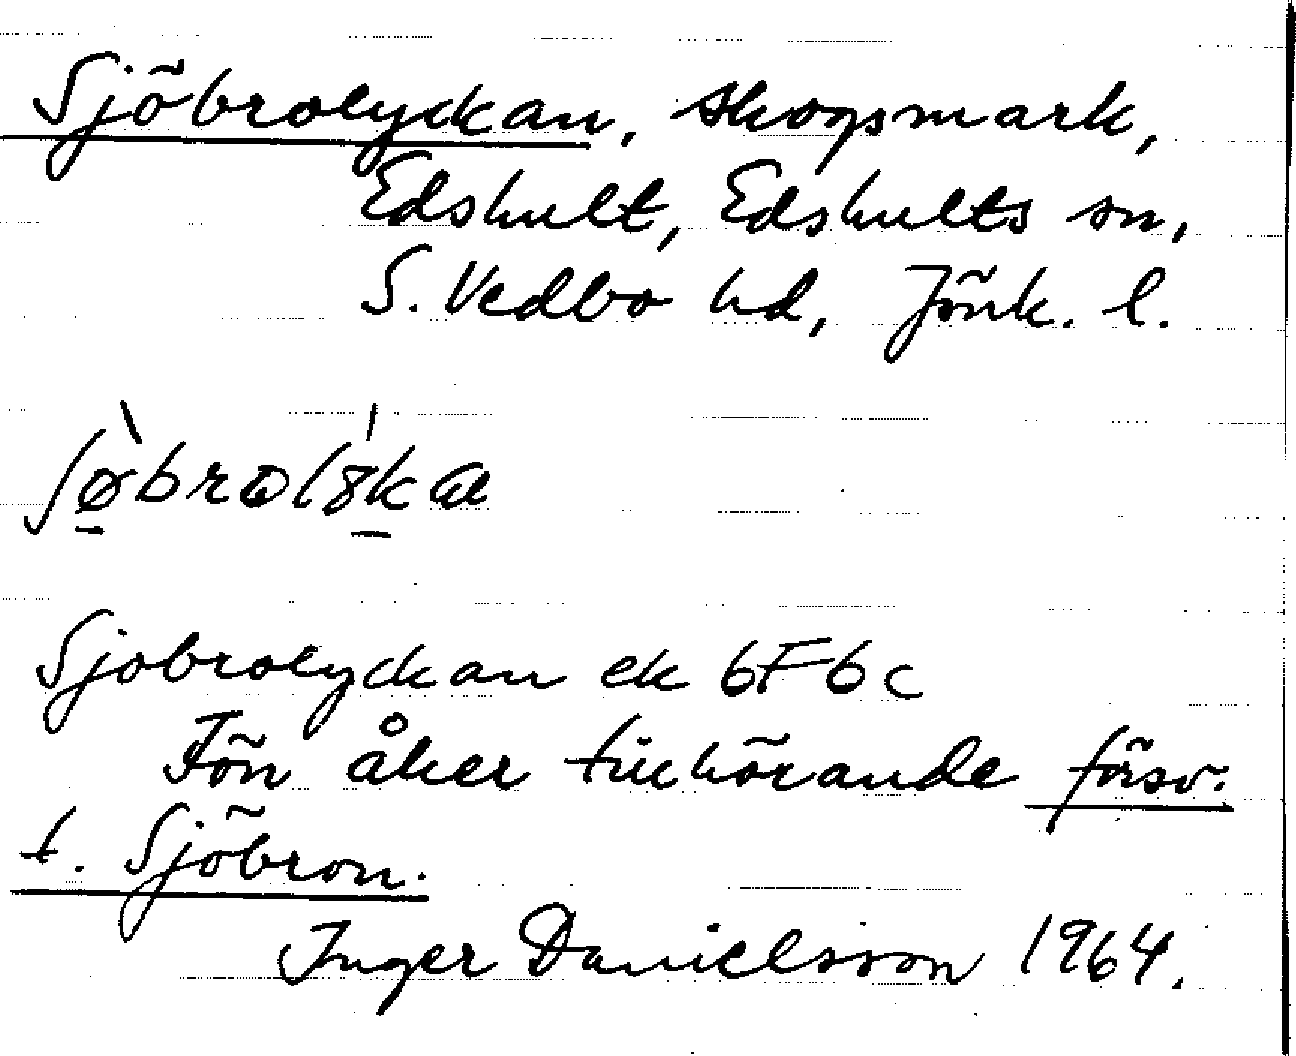 Sjöbrolyckan, skogsmark,
Edshult, Edshults sn,
S. Vedbo hd, Jönk. l.
Sjöbrolyckan ek 6F6c
Förr åker tillhörande försv.
t. Sjöbron.
Inger Danielsson 1964.